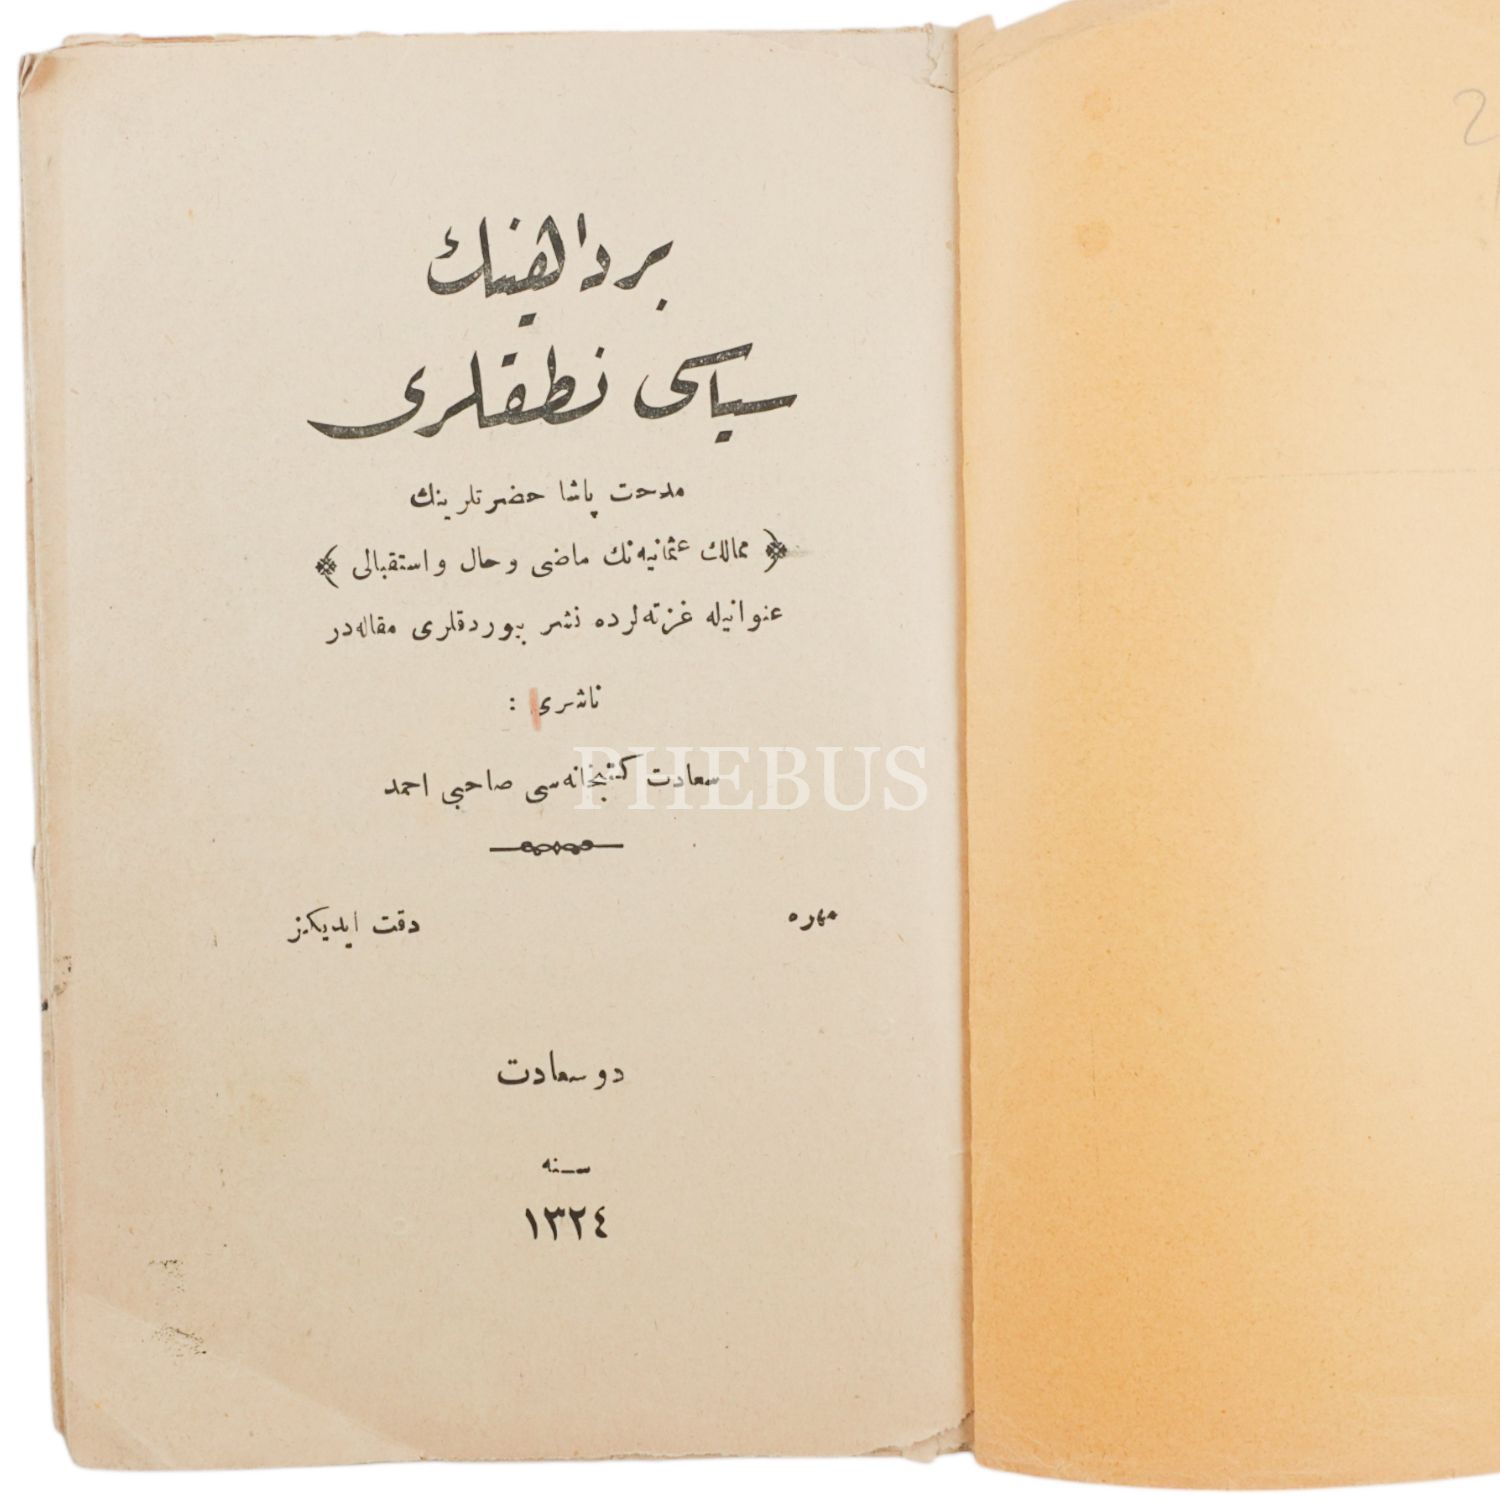 بر داهینك
سیاسی نطقلری
مدحت پاشا حضرتلرینك
﴿ ممالك عثمانیه‌نك ماضی و حال و استقبالی ﴾
عنوانیله غزته‌لرده نشر بیوردقلری مقاله‌در
ناشری :
سعادت كتبخانه‌سی صاحبی احمد
PHEBUS
مهره
دقت ایدیكز
دوسعادت
سنه
١٣٢٤
2